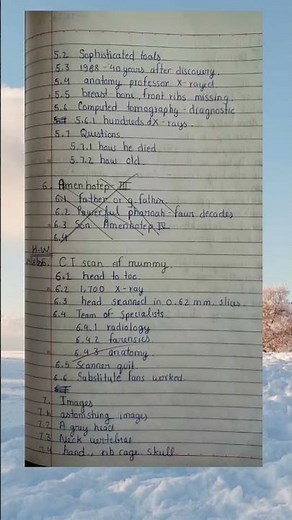 5.2 Sophisticated tools
5.3 1968 - 40 years after discovery
5.4 anatomy professor X-rayed
5.5 breast bone, front ribs missing
5.6 Computed tomography - diagnostic
5.6.1 hundreds of X-rays
5.7 Questions
5.7.1 how he died
5.7.2 how old
6. Amenhotep III
6.1 father or g. father
6.2 Powerful pharoah four decades
6.3 Son Amenhotep IV
6.4
H.W
6. C T scan of mummy
6.1 head to toe
6.2 1,700 X-ray
6.3 head scanned in 0.62 mm slices
6.4 Team of Specialists
6.4.1 radiology
6.4.2 forensics
6.4.3 anatomy
6.5 Scanner quit
6.6 Substitute fans worked
7. Images
7.1 astonishing images
7.2 A grey head
7.3 Neck vertebrae
7.4 hand, rib cage, skull